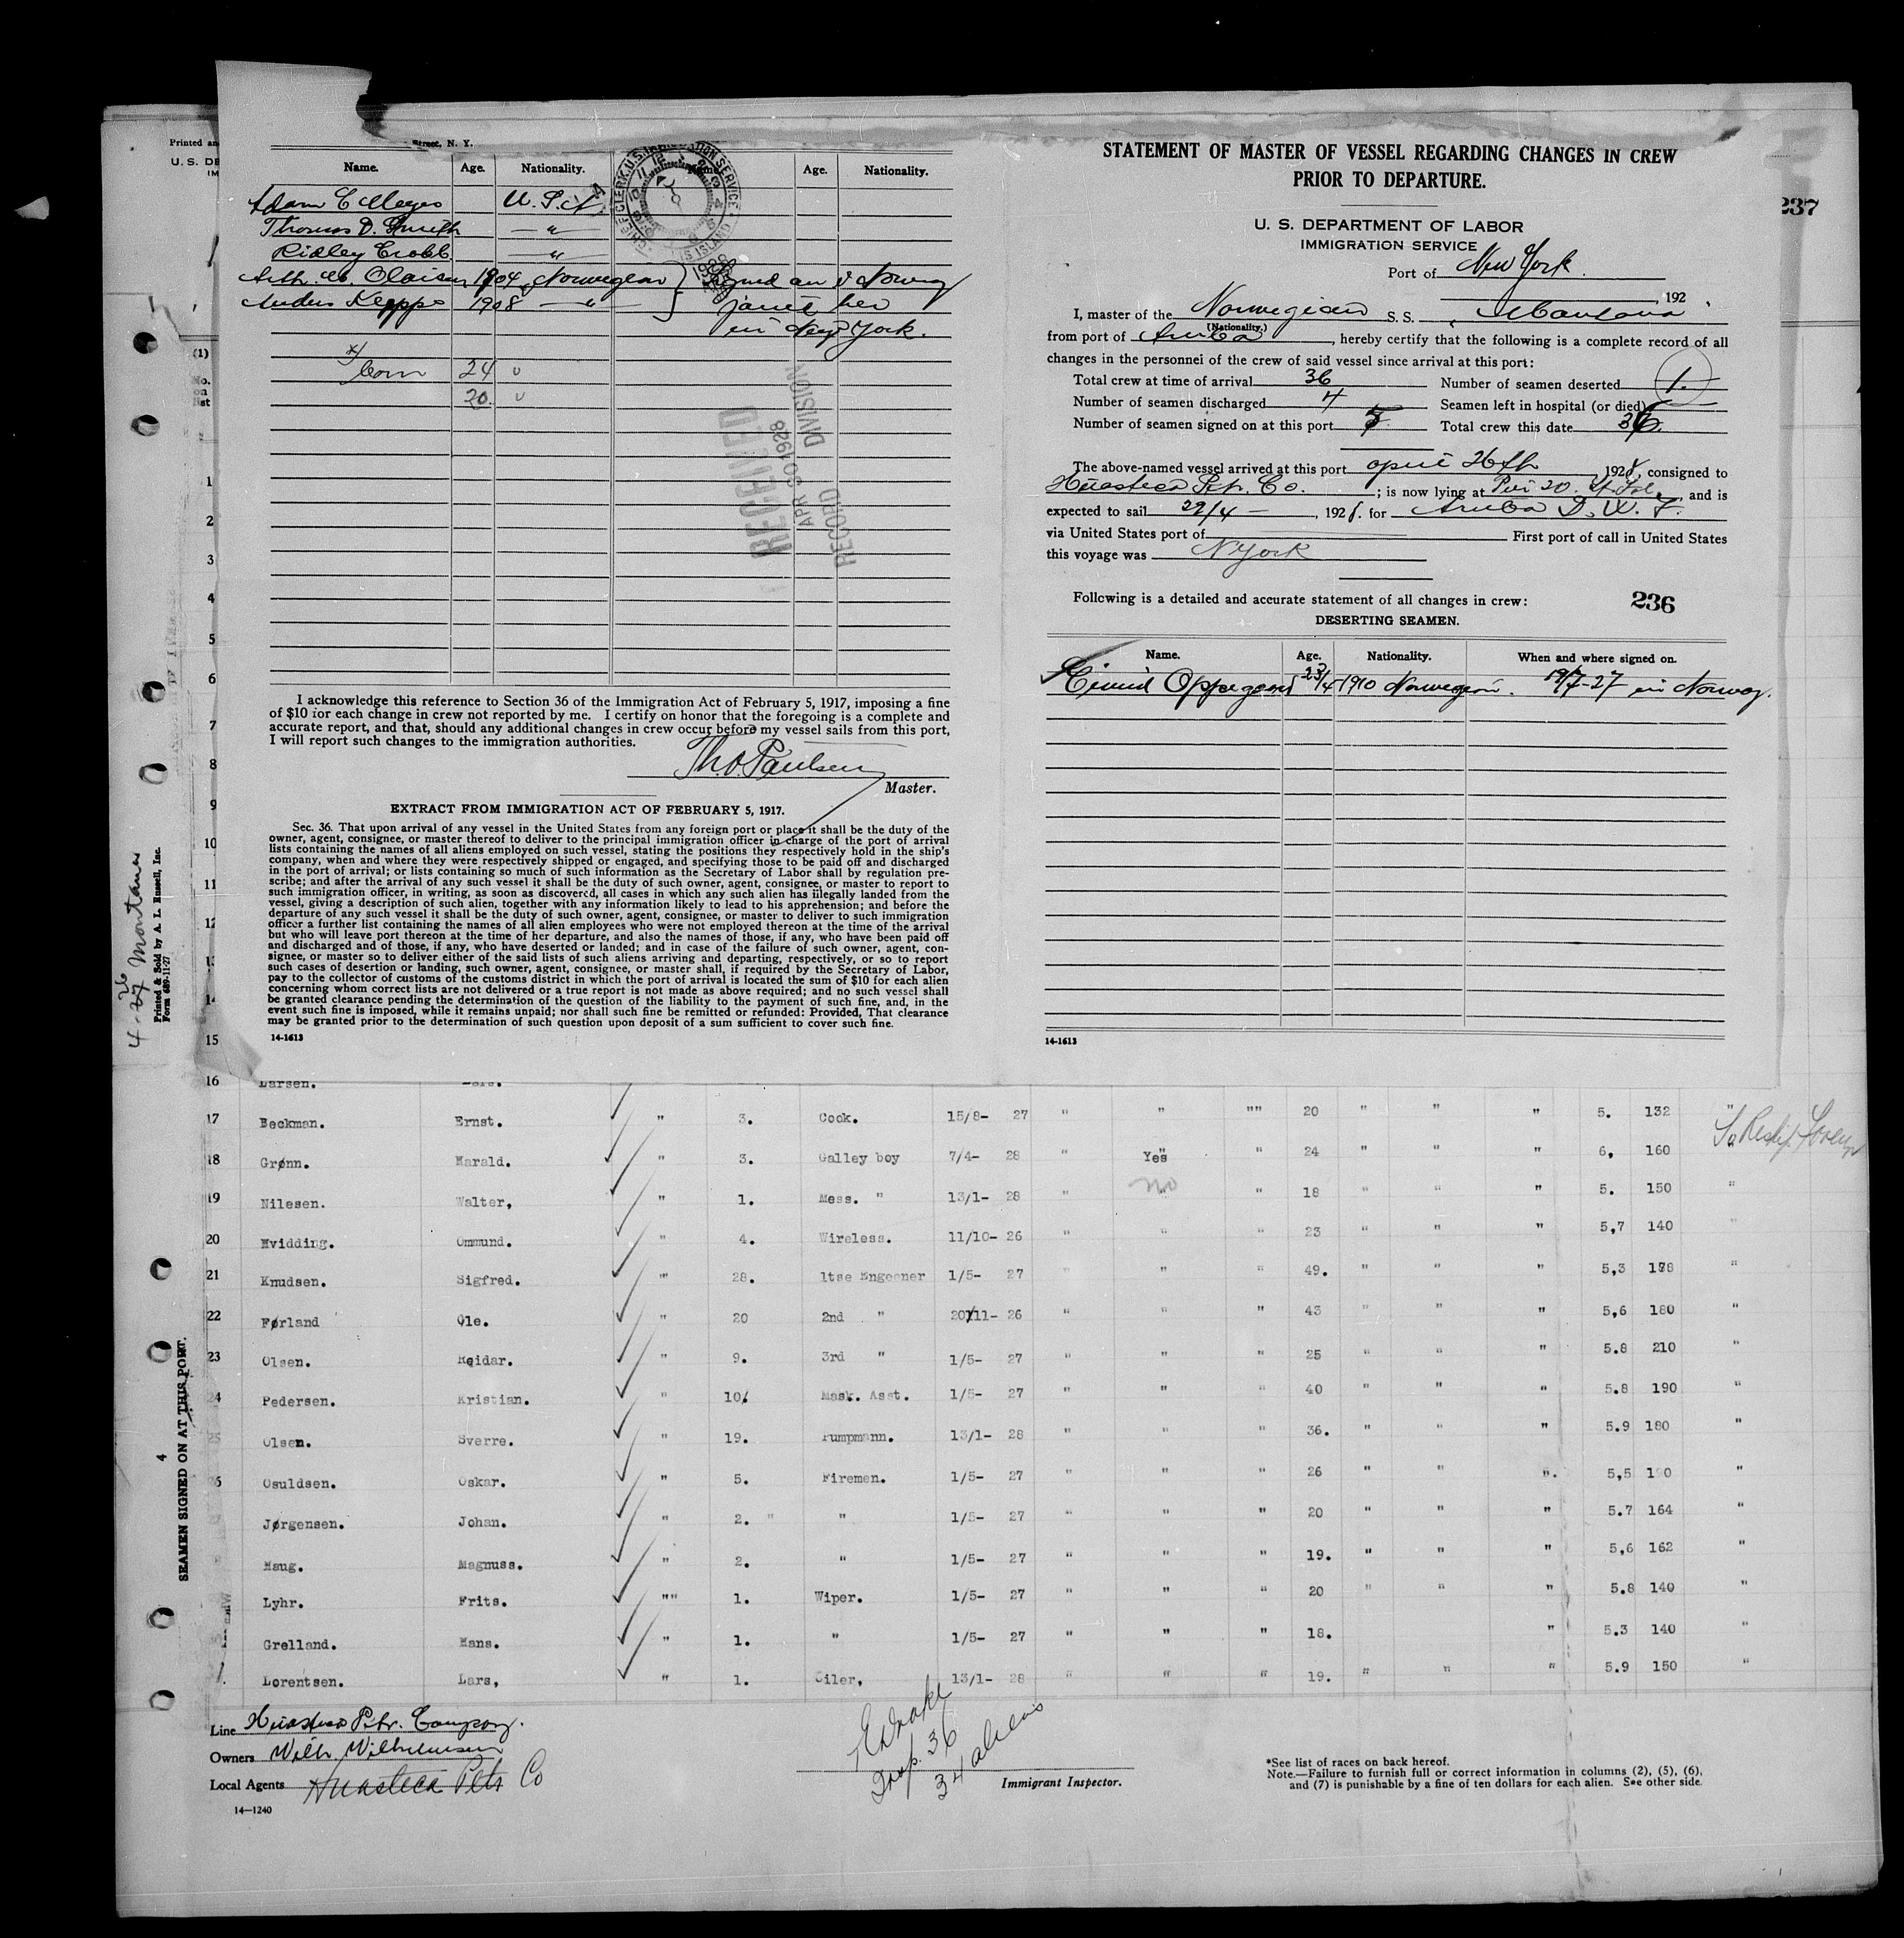 Printed and
Street, N. Y.
U. S. DE
IM
Name. Age. Nationality. Name. Age. Nationality.
Adam E Meyes U. S. A.
Thomas D. Smith — " —
Ridley Crobb — " —
Arth. Olaisen 1904 Norwegian } signed on
Anders Keppe 1908 — " —
in New York.
Born 24
20.
RECEIVED
APR 30 1928
RECORD DIVISION
I acknowledge this reference to Section 36 of the Immigration Act of February 5, 1917, imposing a fine
of $10 for each change in crew not reported by me. I certify on honor that the foregoing is a complete and
accurate report, and that, should any additional changes in crew occur before my vessel sails from this port,
I will report such changes to the immigration authorities.
Th. O. Paulsen
Master.
EXTRACT FROM IMMIGRATION ACT OF FEBRUARY 5, 1917.
Sec. 36. That upon arrival of any vessel in the United States from any foreign port or place it shall be the duty of the
owner, agent, consignee, or master thereof to deliver to the principal immigration officer in charge of the port of arrival
lists containing the names of all aliens employed on such vessel, stating the positions they respectively hold in the ship's
company, when and where they were respectively shipped or engaged, and specifying those to be paid off and discharged
in the port of arrival; or lists containing so much of such information as the Secretary of Labor shall by regulation pre-
scribe; and after the arrival of any such vessel it shall be the duty of such owner, agent, consignee, or master to report to
such immigration officer, in writing, as soon as discovered, all cases in which any such alien has illegally landed from the
vessel, giving a description of such alien, together with any information likely to lead to his apprehension; and before the
departure of any such vessel it shall be the duty of such owner, agent, consignee, or master to deliver to such immigration
officer a further list containing the names of all alien employees who were not employed thereon at the time of the arrival
but who will leave port thereon at the time of her departure, and also the names of those, if any, who have been paid off
and discharged and of those, if any, who have deserted or landed; and in case of the failure of such owner, agent, con-
signee, or master so to deliver either of the said lists of such aliens arriving and departing, respectively, or so to report
such cases of desertion or landing, such owner, agent, consignee, or master shall, if required by the Secretary of Labor,
pay to the collector of customs of the customs district in which the port of arrival is located the sum of $10 for each alien
concerning whom correct lists are not delivered or a true report is not made as above required; and no such vessel shall
be granted clearance pending the determination of the question of the liability to the payment of such fine, and, in the
event such fine is imposed, while it remains unpaid; nor shall such fine be remitted or refunded: Provided, That clearance
may be granted prior to the determination of such question upon deposit of a sum sufficient to cover such fine.
14-1613
STATEMENT OF MASTER OF VESSEL REGARDING CHANGES IN CREW
PRIOR TO DEPARTURE.
237
U. S. DEPARTMENT OF LABOR
IMMIGRATION SERVICE
Port of New York
, 192
I, master of the Norwegian S. S. Montana
(Nationality.)
from port of Aruba, hereby certify that the following is a complete record of all
changes in the personnel of the crew of said vessel since arrival at this port:
Total crew at time of arrival 36 Number of seamen deserted 1.
Number of seamen discharged 4 Seamen left in hospital (or died) —
Number of seamen signed on at this port 5 Total crew this date 36.
The above-named vessel arrived at this port april 26th, 1928, consigned to
Huasteca Petr. Co.; is now lying at Pier 20, and is
expected to sail 1928. for Aruba D. W. I.
via United States port of First port of call in United States
this voyage was N York
Following is a detailed and accurate statement of all changes in crew: 236
DESERTING SEAMEN.
Name. Age. Nationality. When and where signed on.
Oppegaard 23/4 1910 Norwegian. 19/7-27 in Norway.
14-1613
(1)
No.
on
list
1
2
3
4
5
6
7
8
9
10
11
12
13
14
15
4-26 Montana
Printed & Sold by A. L. Russell, Inc.
Form 689-11-27
4
SEAMEN SIGNED ON AT THIS PORT.
16 Larsen. Lars.
17 Beckman. Ernst. " 3. Cook. 15/8- 27 " " "" 20 " " " 5. 132 "
18 Grønn. Harald. " 3. Galley boy 7/4- 28 " Yes " 24 " " " 6, 160
19 Nilesen. Walter, " 1. Mess. " 13/1- 28 " no " 18 " " " 5. 150 "
20 Hvidding. Ommund. " 4. Wireless. 11/10- 26 " " " 23 " " " 5,7 140 "
21 Knudsen. Sigfred. " 28. 1tse Engeener 1/5- 27 " " " 49. " " " 5,3 178 "
22 Førland Ole. " 20 2nd " 20/11- 26 " " " 43 " " " 5,6 180 "
23 Olsen. Reidar. " 9. 3rd " 1/5- 27 " " " 25 " " " 5.8 210 "
24 Pedersen. Kristian. " 10. Mask. Asst. 1/5- 27 " " " 40 " " " 5.8 190 "
25 Olsen. Sverre. " 19. Pumpmann. 13/1- 28 " " " 36. " " " 5.9 180 "
26 Osuldsen. Oskar. " 5. Firemen. 1/5- 27 " " " 26 " " ". 5,5 190 "
Jørgensen. Johan. " 2. " " 1/5- 27 " " " 20 " " " 5.7 164 "
Haug. Magnuss. " 2. " 1/5- 27 " " " 19. " " " 5,6 162 "
Lyhr. Frits. "" 1. Wiper. 1/5- 27 " " " 20 " " " 5.8 140 "
Grelland. Hans. " 1. " 1/5- 27 " " " 18. " 5.3 140 "
Lorentsen. Lars, " 1. Oiler, 13/1- 28 " " " 19. " " " 5.9 150 "
Line Huasteca Petr. Company.
Owners Wilh. Wilhelmsen
Local Agents Huasteca Petr Co
14—1240
Insp. 36
34 aliens
Immigrant Inspector.
*See list of races on back hereof.
Note.—Failure to furnish full or correct information in columns (2), (5), (6),
and (7) is punishable by a fine of ten dollars for each alien. See other side.